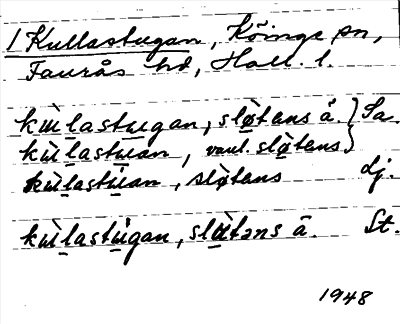 1 Kullastugan, Köinge sn,
Faurås hd, Hall. l.
kùlastugan, slòtens å. } Sa.
kùlastuan, vanl. slòtens }
kùlastùan, slòtens dj.
kùlastùgan, slòtəns å. St.
1948